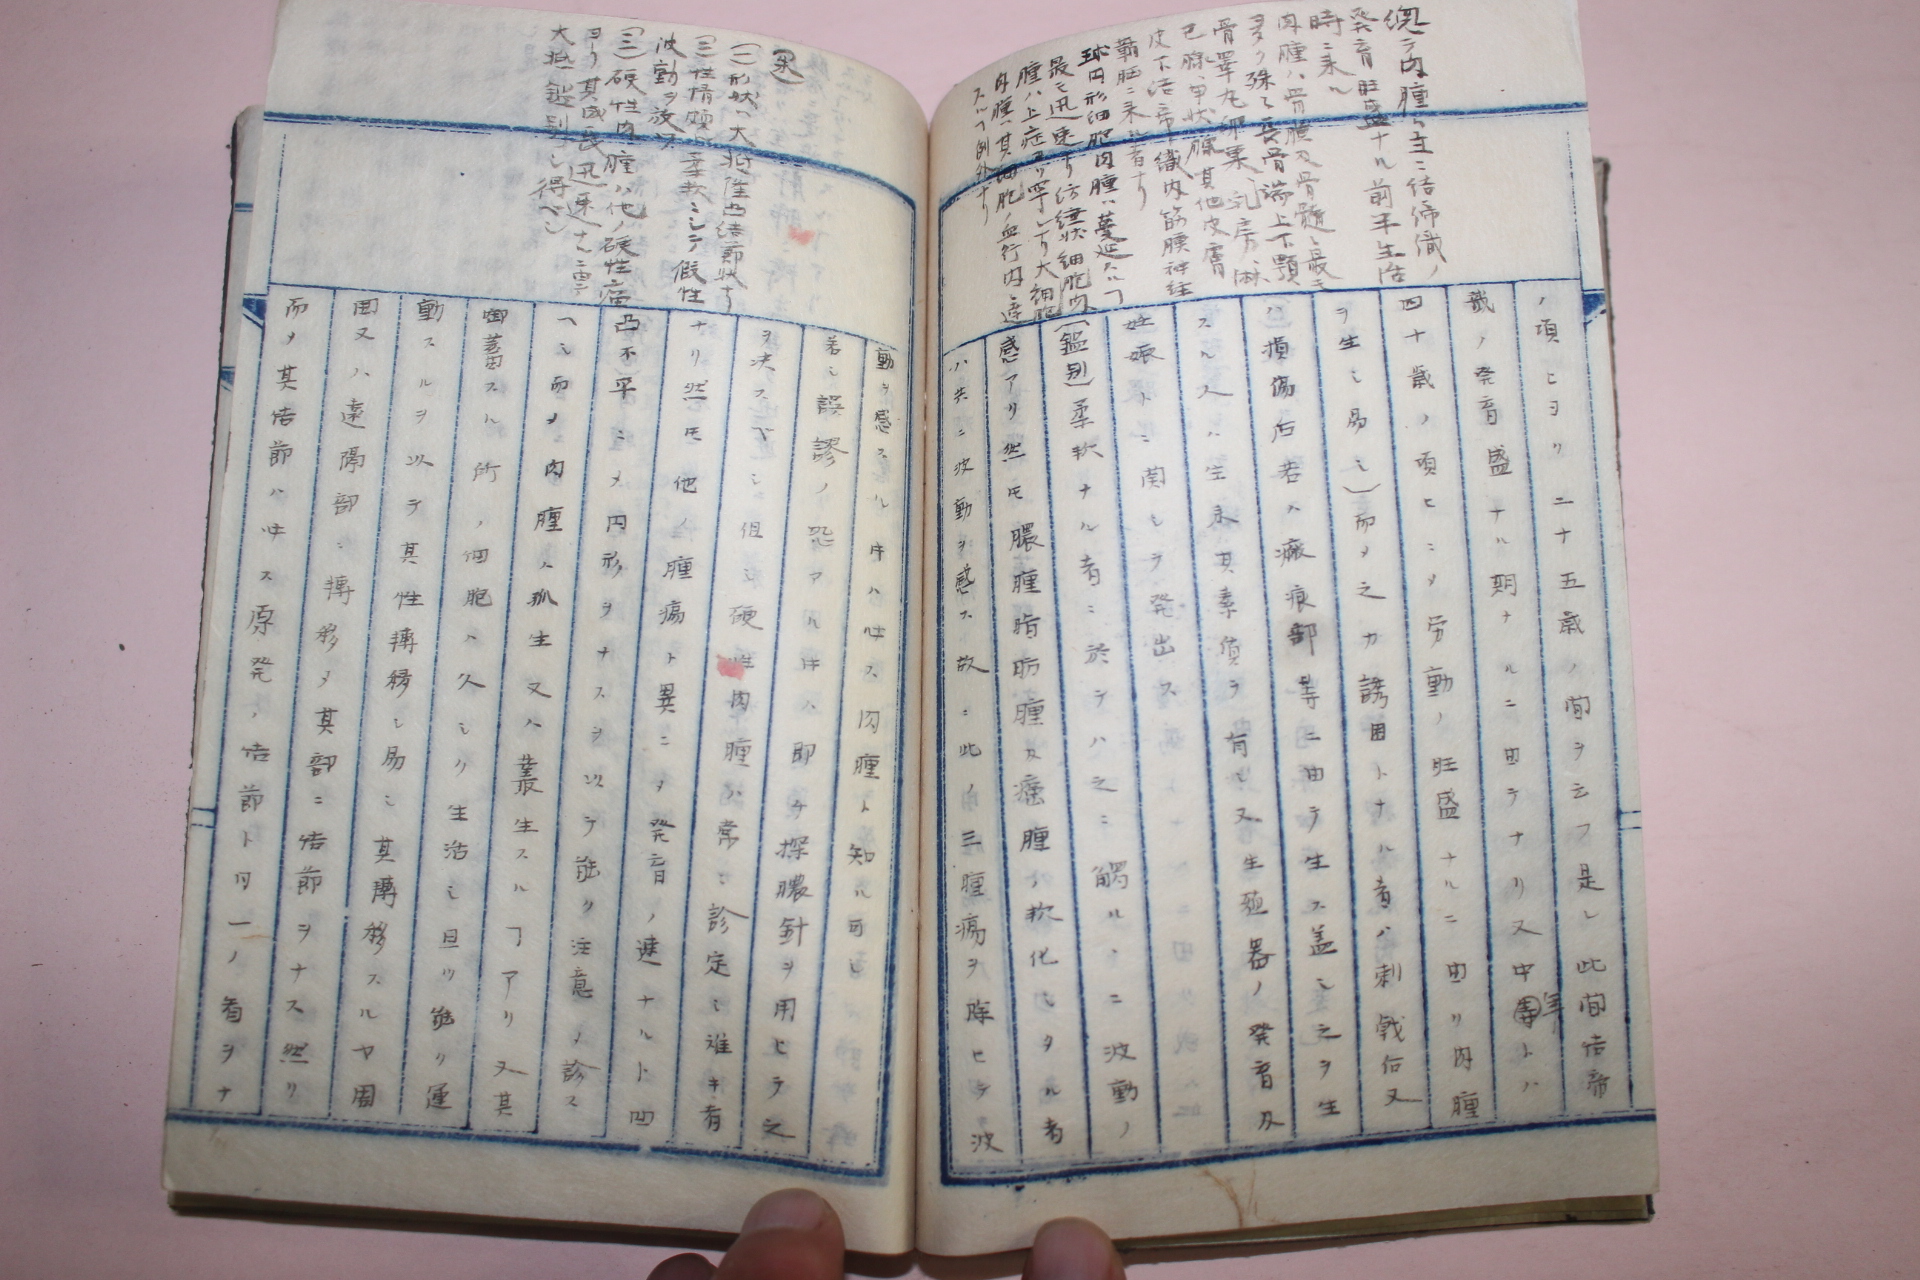 総テ肉腫ハ主ニ結締織ノ
発育旺盛ナル前半生活
時ニ来ル
肉腫ハ骨膜及骨髄ニ最モ
多ク殊ニ長骨端上下顎
骨睾丸卵巣乳房淋
巴腺甲状腺其他皮膚
皮下結締織内筋腱神経
鞘ニ来ル者ナリ
球円形細胞肉腫ハ蔓延スル
最モ迅速ナリ紡錘状細胞肉
腫ハ上症ヨリ寧シナリ大細胞
肉腫ハ其細胞ノ血行内ニ達
スル例外ナリ
ノ項ヒヨリ二十五歳ノ間ヲ云フ是レ此間結締
織ノ発育盛ナル期ナルニ由テナリ又中年トハ
四十歳ノ項ヒニメ労動ノ旺盛ナルニ由リ肉腫
ヲ生シ易シ)而メ之カ誘因トナル者ハ刺戟后又
ハ損傷后若ハ瘢痕部等ニ由テ生ス蓋シ之ヲ生
スル人ハ生来其素質ヲ有シ又生殖器ノ発育及
妊娠トニ関シテ発出ス
(鑑別)柔軟ナル者ニ於テハ之ニ觸ルヽニ波動ノ
感アリ然モ膿腫脂肪腫及癌腫ノ軟化シタル者
ハ共ニ波動ヲ感ス故ニ此ノ三腫瘍ヲ除ヒテ波
(一)形状ハ大抵凸結節状ナリ
(二)性情頗ル柔軟ニシテ仮性
波動ヲ放ツ
(三)硬性肉腫ハ他ノ硬性癌
ヨリ其成長迅速ナルニ由テ
大抵鑑別シ得ベシ
動ヲ感スル時ハ必ス肉腫ト知ル可シ
若シ誤謬ノ恐アル時ハ即チ探膿針ヲ用ヒテ之
ヲ决スベシ但シ硬性肉腫ハ常ニ診定シ难キ者
ナリ然モ他ノ腫瘍ト異ニメ発育ノ速ナルト凹
凸不平ニメ円形ヲナスヲ以テ能ク注意メ診ス
ヘシ而メ肉腫ハ孤生又ハ叢生スルヿアリ又其
蓄スル所ノ細胞ハ久シク生活シ且ツ能ク運
動スルヲ以テ其性轉移シ易シ其轉移スルヤ周
囲又ハ遠隔部ニ轉移メ其部ニ結節ヲナス然リ
而メ其結節ハ必ス原発ノ結節ト同一ノ看ヲナ